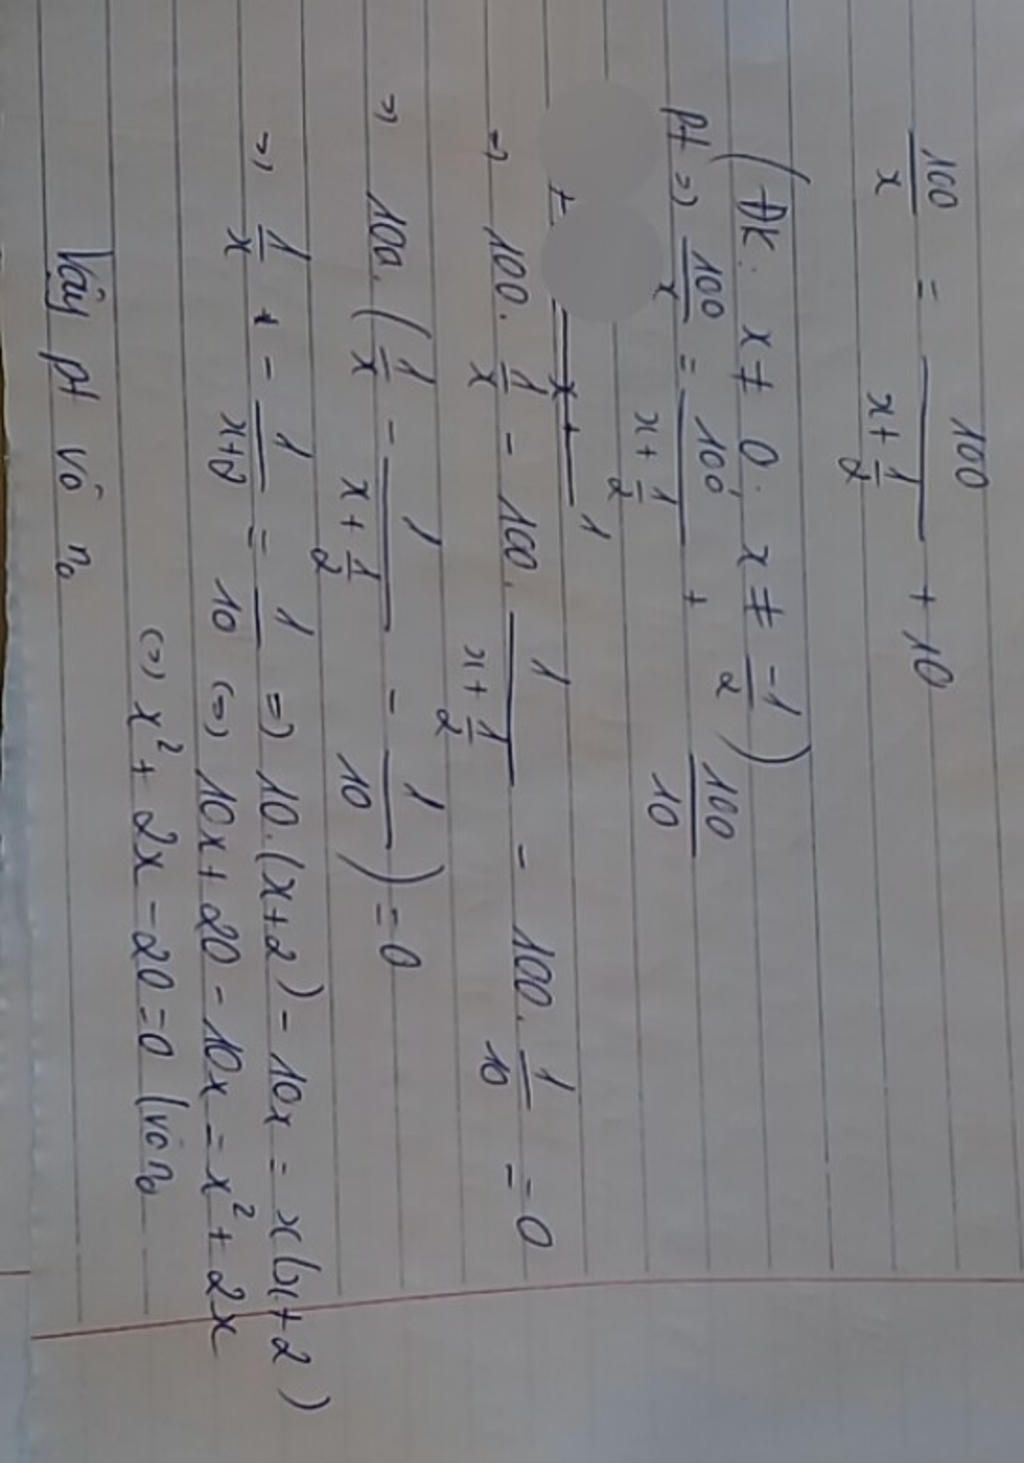 100/x = 100/(x + 1/2) + 10
(ĐK: x ≠ 0. x ≠ -1/2)
pt ⇒ 100/x = 100/(x + 1/2) + 100/10
⇒ 100. 1/x - 100. 1/(x + 1/2) - 100. 1/10 = 0
⇒ 100. (1/x - 1/(x + 1/2) - 1/10) = 0
⇒ 1/x + - 1/(x+2) = 1/10 ⇒ 10.(x+2) - 10x = x(x+2)
(⇒) 10x + 20 - 10x = x² + 2x
(⇒) x² + 2x - 20 = 0 (vô no
Vậy pt vô no